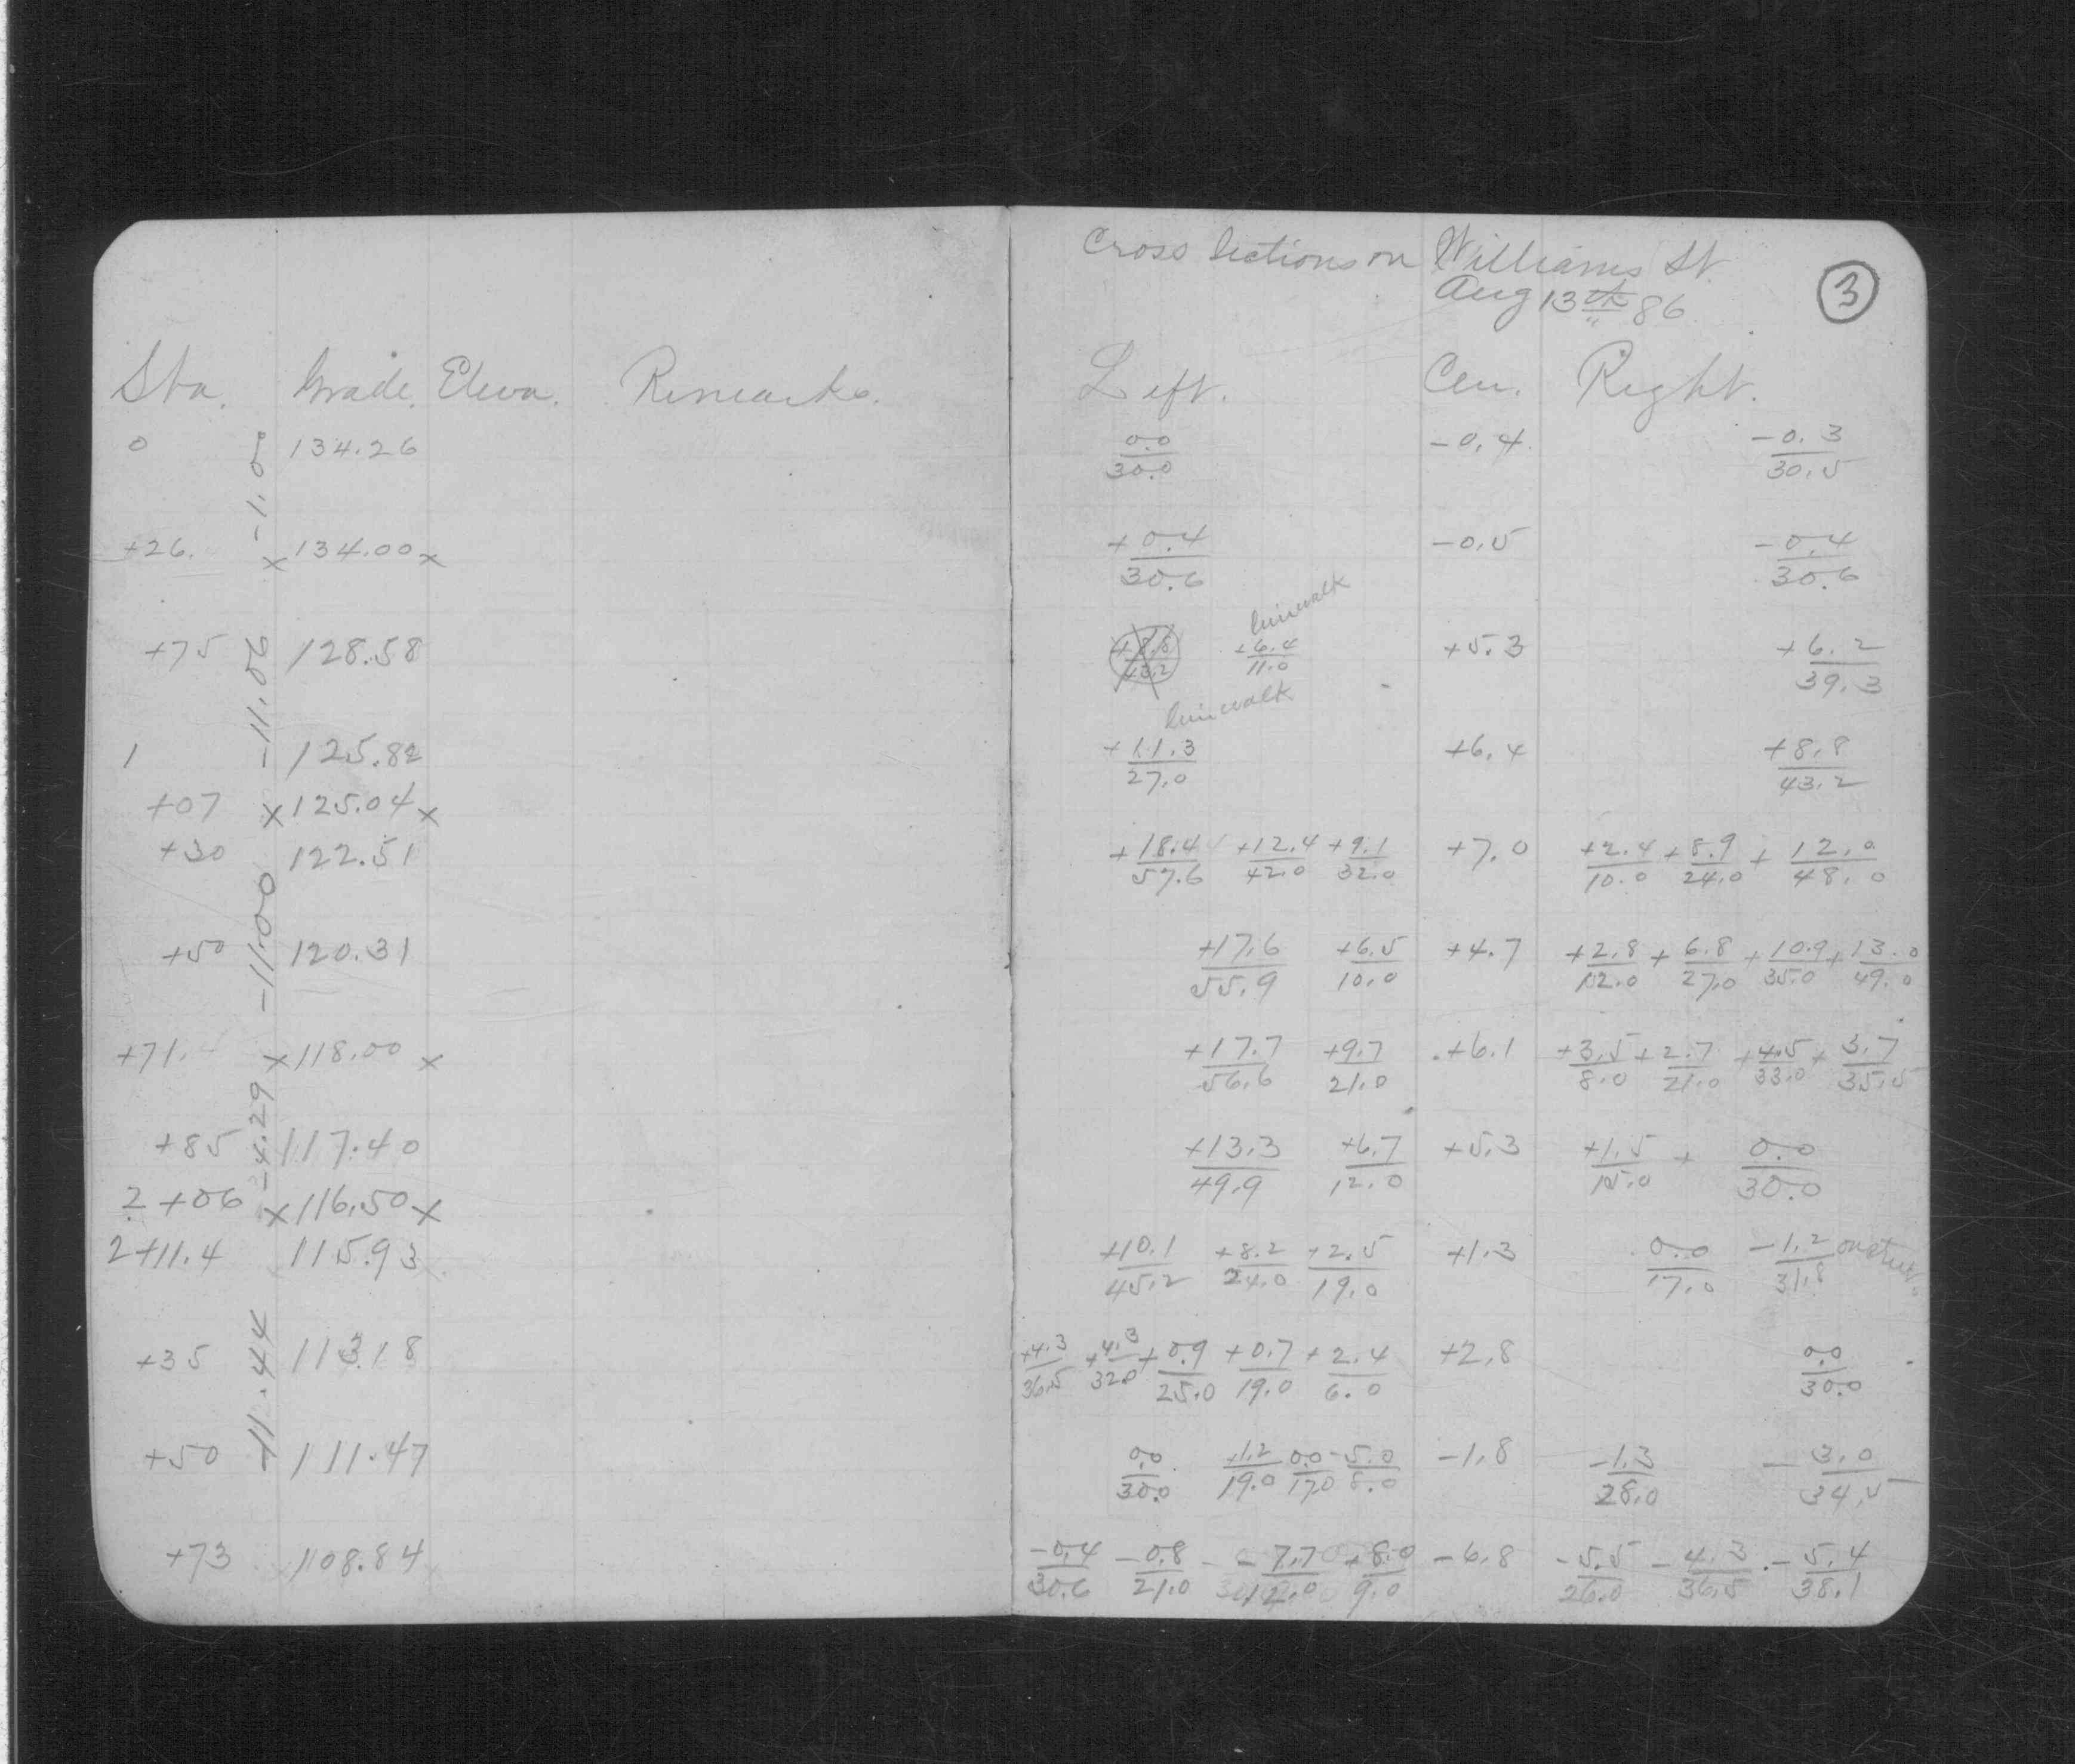 Cross Sections on Williams St.
Aug 13th 86
3
Sta. Grade. Eleva. Remarks.
Left. Cen. Right.
0 134.26
-1.0
+26. x 134.00 x
+75 128.58
-11.06
1 125.82
+07 x 125.04 x
+30 122.51
-11.00
+50 120.31
+71. x 118.00 x
-4.29
+85 117.40
2 +06 x 116.50 x
2+11.4 115.93
-11.44
+35 113.18
+50 111.47
+73 108.84
0.0/30.0 -0.4 -0.3/30.5
+0.4/30.6 -0.5 -0.4/30.6
+8.8/43.2 +6.4/11.0 +5.3 +6.2/39.3
+11.3/27.0 +6.4 +8.8/43.2
+18.4/57.6 +12.4/42.0 +9.1/32.0 +7.0 +2.4/10.0 +8.9/24.0 +12.0/48.0
+17.6/55.9 +6.5/10.0 +4.7 +2.8/12.0 +6.8/27.0 +10.9/35.0 +13.0/49.0
+17.7/56.6 +9.7/21.0 +6.1 +3.5/8.0 +2.7/21.0 +4.5/33.0 +3.7/35.5
+13.3/49.9 +6.7/12.0 +5.3 +1.5/15.0 + 0.0/30.0
+10.1/45.2 +8.2/24.0 +2.5/19.0 +1.3 0.0/17.0 -1.2/31.8
+4.3/36.5 +4.3/32.0 +0.9/25.0 +0.7/19.0 +2.4/6.0 +2.8 0.0/30.0
0.0/30.0 +1.2/19.0 0.0/17.0 -5.0/8.0 -1.8 -1.3/28.0 -3.0/34.5
-0.4/30.6 -0.8/21.0 -7.7/12.0 +8.0/9.0 -6.8 -5.5/26.0 -4.3/36.5 -5.4/38.1